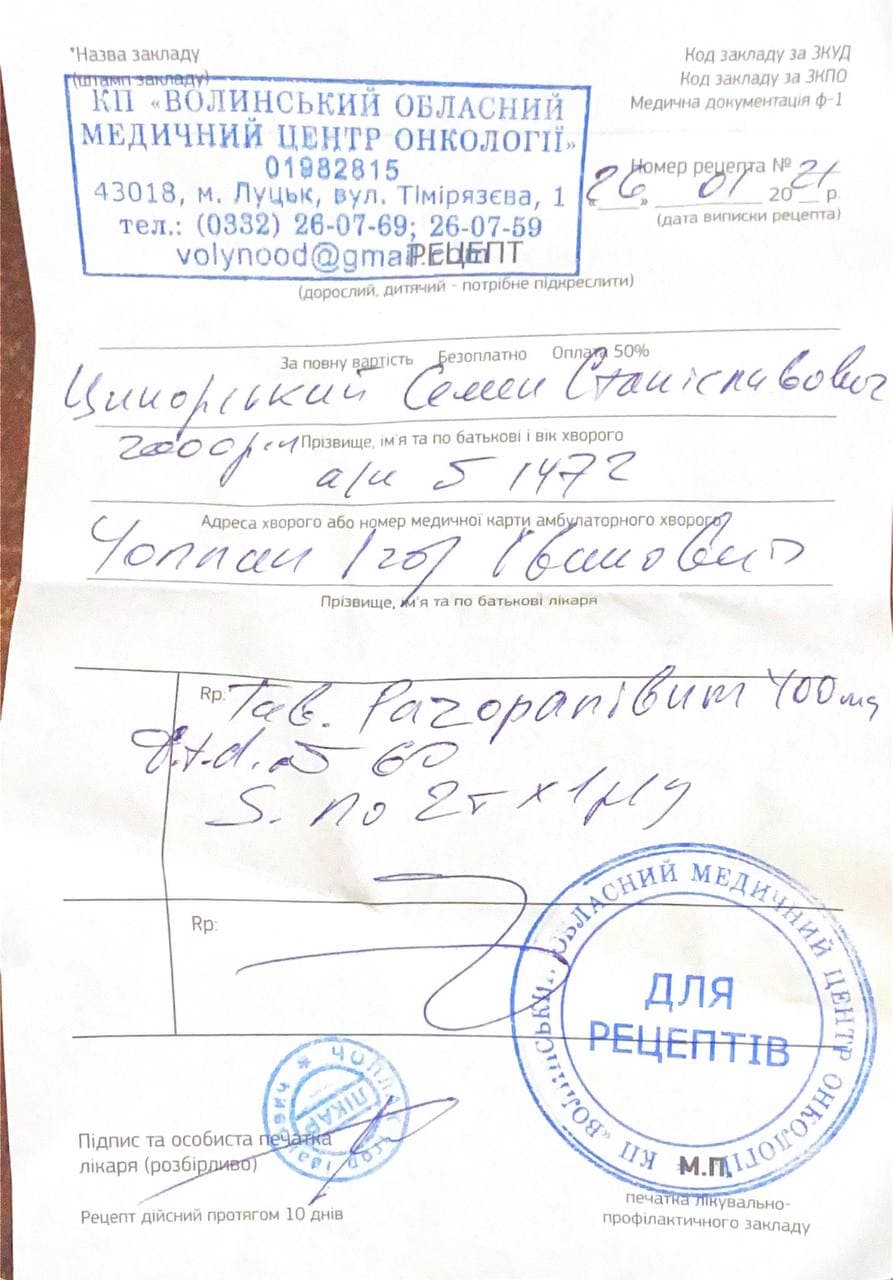 *Назва закладу
(штамп закладу)
Код закладу за ЗКУД
Код закладу за ЗКПО
Медична документація ф-1
КП «ВОЛИНСЬКИЙ ОБЛАСНИЙ
МЕДИЧНИЙ ЦЕНТР ОНКОЛОГІЇ»
01982815
43018, м. Луцьк, вул. Тімірязєва, 1
тел.: (0332) 26-07-69; 26-07-59
volynood@gmail.com
Номер рецепта №
«26» 01 2021 р.
(дата виписки рецепта)
РЕЦЕПТ
(дорослий, дитячий - потрібне підкреслити)
За повну вартість Безоплатно Оплата 50%
Семен Станіславович
Прізвище, ім'я та по батькові і вік хворого
а/к 5 1472
Адреса хворого або номер медичної карти амбулаторного хворого
Ігор Іванович
Прізвище, ім'я та по батькові лікаря
Rp: Таб. 400 мg
d.t.d. 60
S. по 2т х 1
Rp:
КП «ВОЛИНСЬКИЙ ОБЛАСНИЙ МЕДИЧНИЙ ЦЕНТР ОНКОЛОГІЇ»
ДЛЯ
РЕЦЕПТІВ
ЛІКАР
Підпис та особиста печатка
лікаря (розбірливо)
М.П.
печатка лікувально-
профілактичного закладу
Рецепт дійсний протягом 10 днів